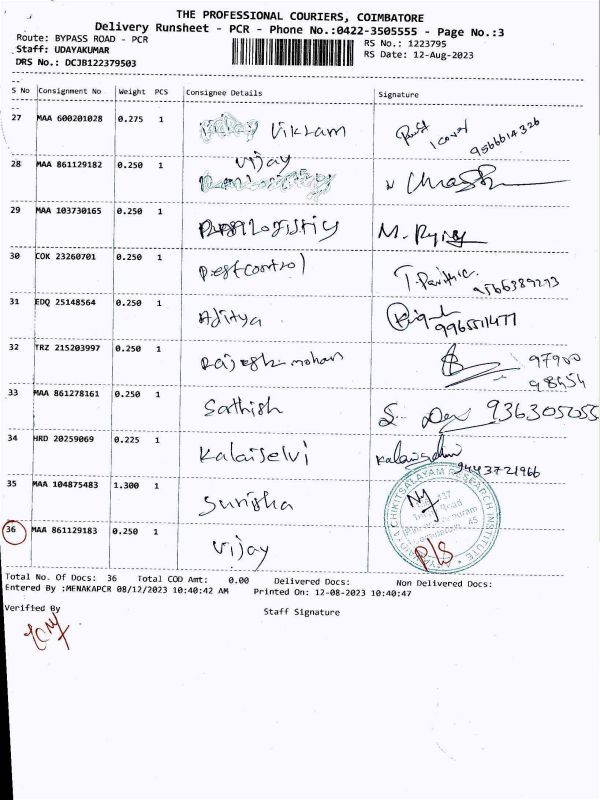 THE PROFESSIONAL COURIERS, COIMBATORE
Delivery Runsheet - PCR - Phone No.:0422-3505555 - Page No.:3
Route: BYPASS ROAD - PCR RS No.: 1223795
Staff: UDAYAKUMAR RS Date: 12-Aug-2023
DRS No.: DCJB122379503
S No Consignment No Weight PCS Consignee Details Signature
27 MAA 600201028 0.275 1 Vikram 1 cover 9566614326
28 MAA 861129182 0.250 1 Vijay
29 MAA 103730165 0.250 1 M.
30 COK 23260701 0.250 1 Pestcontrol
31 EDQ 25148564 0.250 1 Aditya
32 TRZ 215203997 0.250 1 Rajesh mohan
33 MAA 861278161 0.250 1 Sathish
34 HRD 20259069 0.225 1 Kalaiselvi 9443721966
35 MAA 104875483 1.300 1
36 MAA 861129183 0.250 1 Vijay
CHIKITSALAYAM RESEARCH INSTITUTE
Total No. Of Docs: 36 Total COD Amt: 0.00 Delivered Docs: Non Delivered Docs:
Entered By :MENAKAPCR 08/12/2023 10:40:42 AM Printed On: 12-08-2023 10:40:47
Verified By Staff Signature